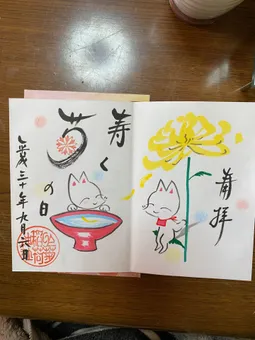 拝
寿く
菊
の日
平成三十年九月六日